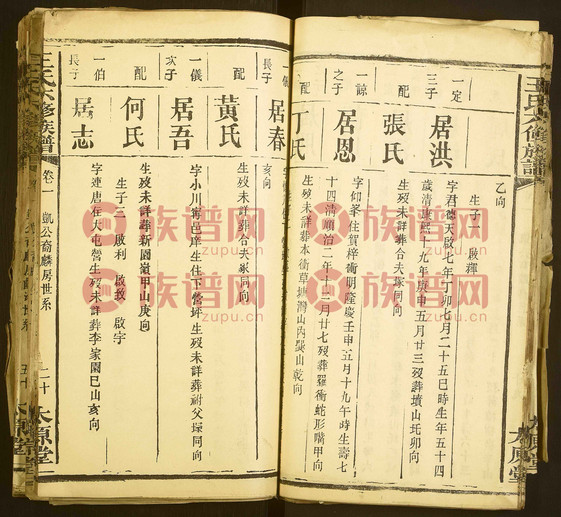 王氏六修族譜
乙向
生子一 啟輝
一定
三子
居洪
字君德天啟七年丁卯七月二十五巳時生年五十四
歲清康熙十九年庚申五月廿三歿葬墳山圫卯向
配
張氏
生歿未詳葬合夫塚同向
一諒
之子
居恩
字仰峯住賀梓衝明隆慶壬申五月十九午時生壽七
十四清順治二年十二月廿七歿葬羅衝蛇形嘴甲向
配
丁氏
生歿未詳葬本衝草塘灣山內巽山乾向
太原堂
一儀
長子
居春
亥向
配
黃氏
生歿未詳葬合夫塚同向
一儀
次子
居吾
字小川寄邑庠生住下營坪生歿未詳葬祔父塚同向
配
何氏
生歿未詳葬新園嶺甲山庚向
生子三 啟利 啟敖 啟字
一伯
長子
居志
字連唐在大屯營生歿未詳葬李家園巳山亥向
王氏六修族譜
卷一
凱公裔麟房世系
二十
太原堂
族谱网
zupu.cn
族谱网
zupu.cn
族谱网
zupu.cn
族谱网
zupu.cn